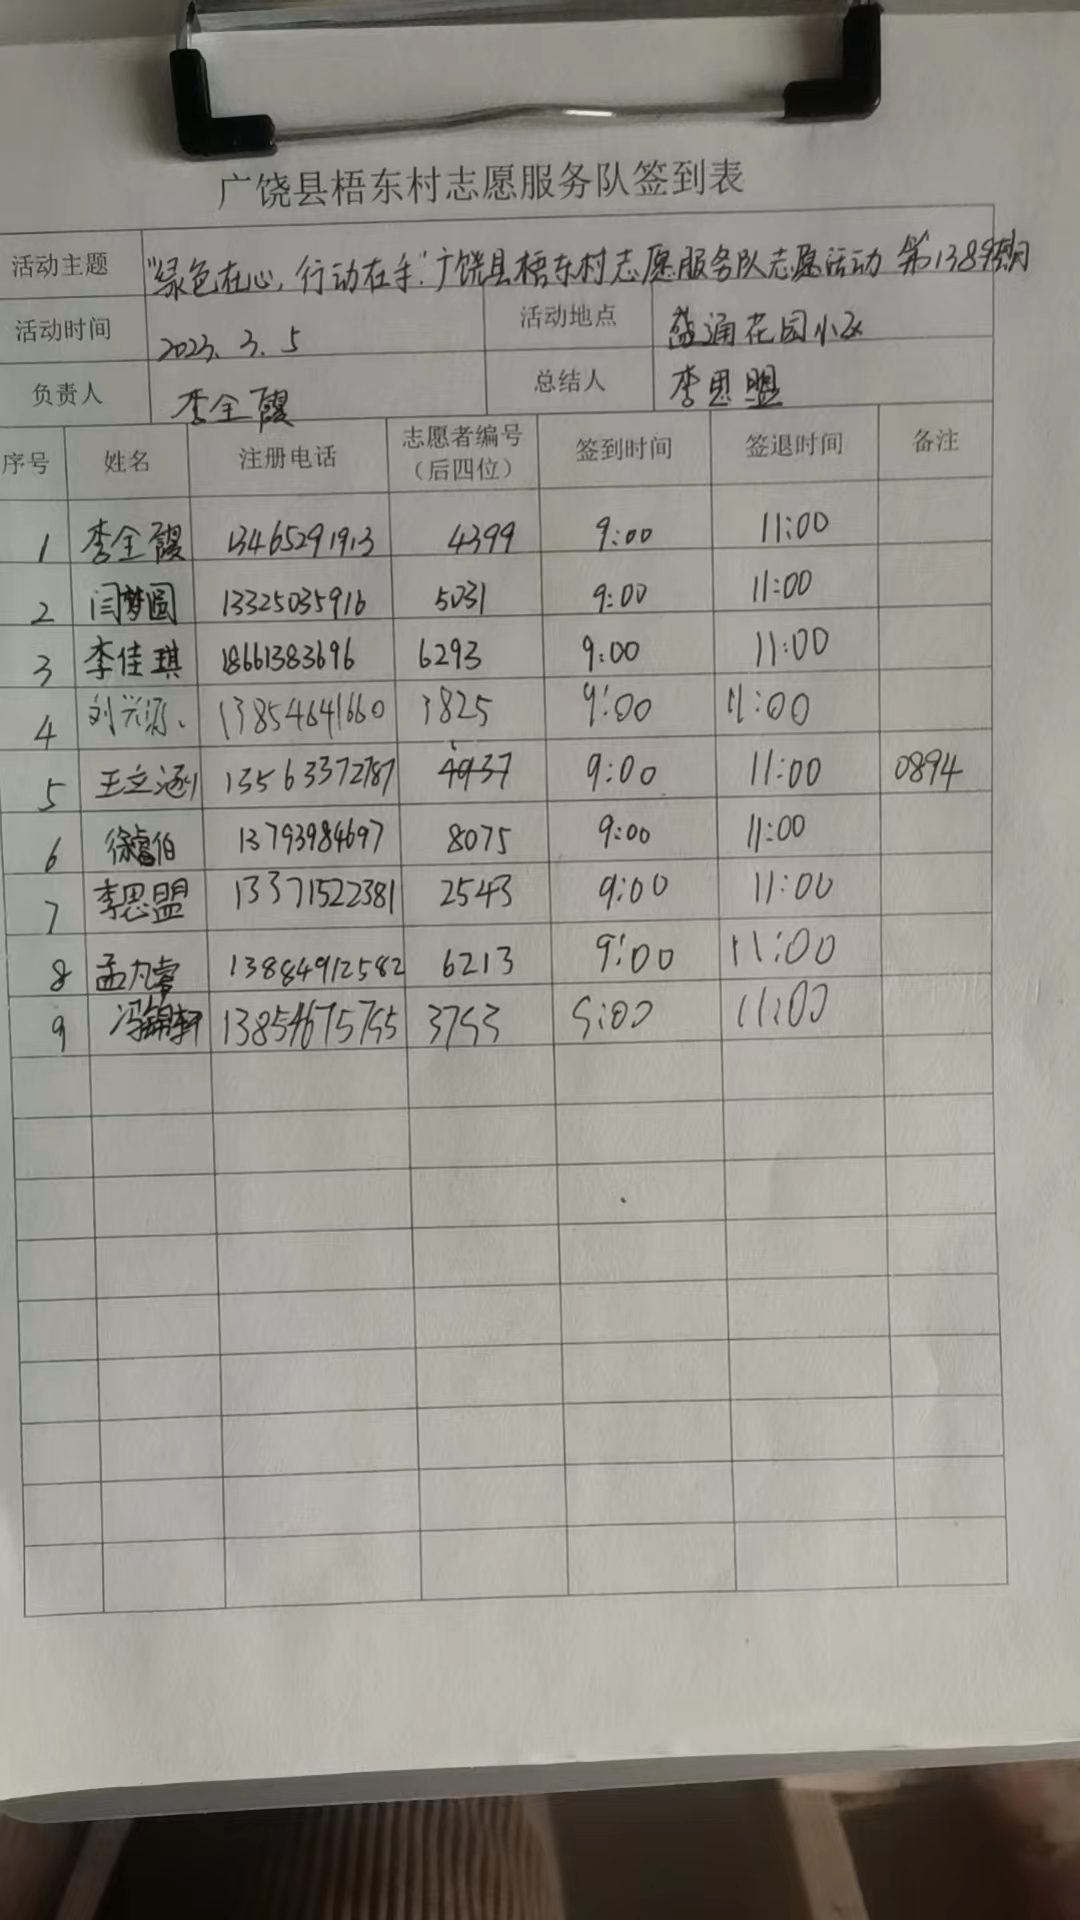 广饶县梧东村志愿服务队签到表
活动主题 "绿色在心,行动在手"广饶县梧东村志愿服务队志愿活动 第1389期
活动时间 2023.3.5 活动地点 盛通花园小区
负责人 李全霞 总结人 李思盟
序号 姓名 注册电话 志愿者编号(后四位) 签到时间 签退时间 备注
1 李全霞 13465291913 4399 9:00 11:00
2 闫梦圆 13325035916 5031 9:00 11:00
3 李佳琪 18661383696 6293 9:00 11:00
4 刘兴源 13854641660 3825 9:00 11:00
5 王文涵 13563372787 4937 9:00 11:00 0894
6 徐睿伯 13793984697 8075 9:00 11:00
7 李思盟 13371522381 2543 9:00 11:00
8 孟凡睿 13884912582 6213 9:00 11:00
9 冯锦轩 13854675755 3753 9:00 11:00